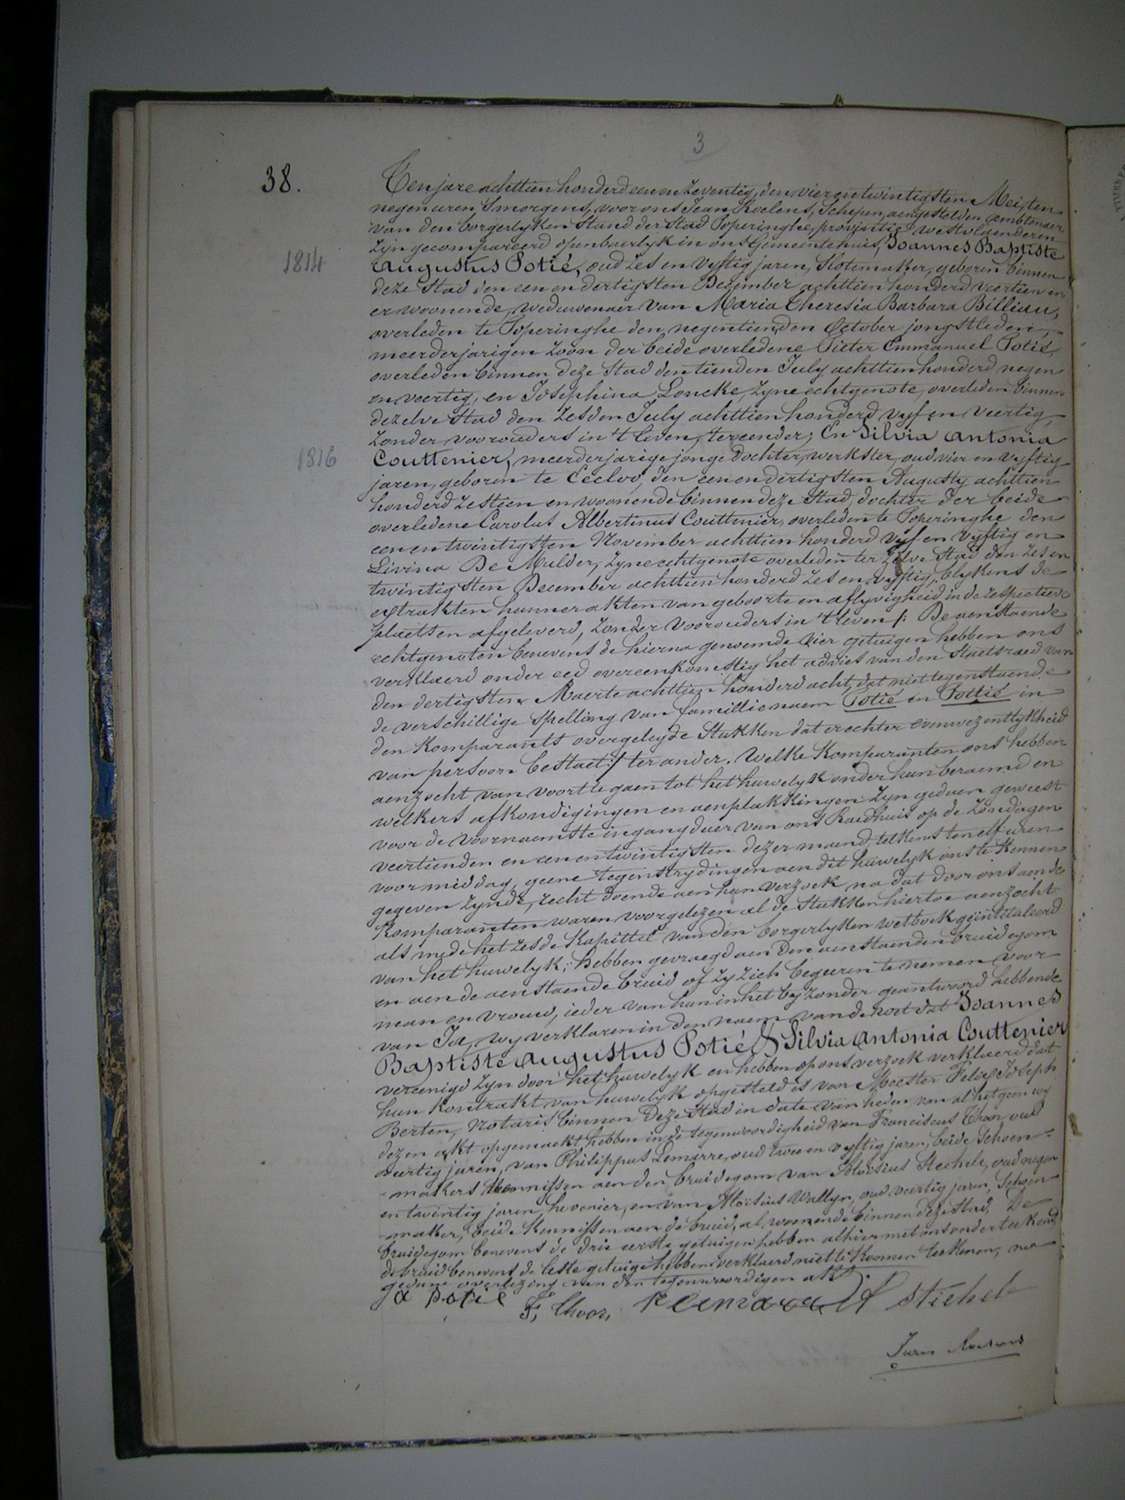 3
38.
Ten jare achttien honderd een en Zeventig, den vier en twintigsten Mei, ten
negen uren Smorgens, voor ons Jean Roelens, Schepen, aengestelden ambtenaer
van den borgerlyken Stand der Stad Poperinghe, provintie westvlaenderen
Zyn gecompareerd openbaerlyk in ons Gemeentehuis, Joannes Baptiste
1814
Augustus Potié, oud Zes en Vyftig jaren, Slotemakker, geboren binnen
deze Stad den een en dertigsten December achttien honderd veertien en
er woonende, weduwenaer van Maria Theresia Barbara Billiau,
overleden te Poperinghe den negentienden October jongstleden,
meerderjarigen Zoon der beide overledene Pieter Emmanuel Potié,
overleden binnen deze Stad den tienden July achttien honderd negen
en veertig, en Josephina Loncke, zyne echtgenote, overleden binnen
dezelve Stad den Zesden July achttien honderd vyf en veertig,
Zonder voorouders in 't leven, ter eender; En Silvia Antonia
1816
Couttenier, meerderjarige jonge Dochter, werkster, oud vier en vyftig
jaren, geboren te Eecloo, den een en dertigsten Augusty achttien
honderd Zestien en woonende binnen deze Stad, dochter der beide
overledene Carolus Albertinus Couttenier, overleden te Poperinghe den
een en twintigsten November achttien honderd vyf en vyftig en
Livina De Mulder, zyne echtgenote overleden ter Zelve Stad den Zes en
twintigsten December achttien honderd Zes en vyftig, blykens de
extrakten hunner akten van geboorte en aflyvigheid in de respectieve
plaetsen afgeleverd, Zonder voorouders in 't leven /: De aenstaende
echtgenoten benevens de hierna genoemde vier getuigen hebben ons
verklaerd onder eed overeenkomstig het advies van den Staetsraed van
den dertigsten Maerte achttien honderd acht, dat niet tegenstaende
de verschillige Spelling van familie naem Potié en Pottié in
den komparants overgeleyde Stukken dat er echter eenwezentlykheid
van persoon bestaet :/ ter ander. Welke komparanten ons hebben
aenzocht van voort te gaen tot het huwelyk onder hun beraemd en
welkers afkondigingen en aenplakkingen Zyn gedaen geweest
voor de voornaemste ingangdeur van ons Raedhuis op de Zondagen
veertienden en een en twintigsten dezer maend telkens ten elf uren
voormiddag, geene tegenstrydingen aen dit huwelyk ons te Kennen
gegeven Zynde, recht doende aen hun verzoek, na dat door ons aen de
Komparanten waren voorgelezen al de Stukken hiertoe aenzocht
als mede het Zesde Kapittel van den borgerlyken wetboek geïntituleerd
van het huwelyk; Hebben gevraegd aen den aenstaenden bruidegom
en aen de aenstaende bruid of Zy Zich begeeren te nemen voor
man en vrouw, ieder van hun in het byzonder geantwoord hebbende
van Ja, wy verklaren in den naem van de wet dat Joannes
Baptiste Augustus Potié & Silvia Antonia Couttenier
vereenigd Zyn door het huwelyk en hebben op ons verzoek verklaerd dat
hun kontrakt van huwelyk opgesteld is van Meester Felix Joseph
Berten, Notaris binnen deze Stad in date van heden van al het gene wy
dezen akt opgemaekt hebben in de tegenwoordigheid van Franciscus Thoor, oud
veertig jaren, van Philippus Lemarre, oud twee en vyftig jaren, beide Schoen-
makers, Kennissen aen den bruidegom van Aloïsius Stichele, oud negen
en twintig jaren, hovenier, en van Aloïsius Wallyn, oud veertig jaren, Schoen-
maker, beide Kennissen aen de bruid, al woonende binnen deze Stad, De
bruidegom benevens de drie eerste getuigen hebben alhier met ons onderteekend,
de bruid benevens de leste getuige hebben verklaerd niet te Konnen teekenen, na
gedane overlezing van den tegenwoordigen akt.
ja potié F, Thoor, stichele
Jean Roelens